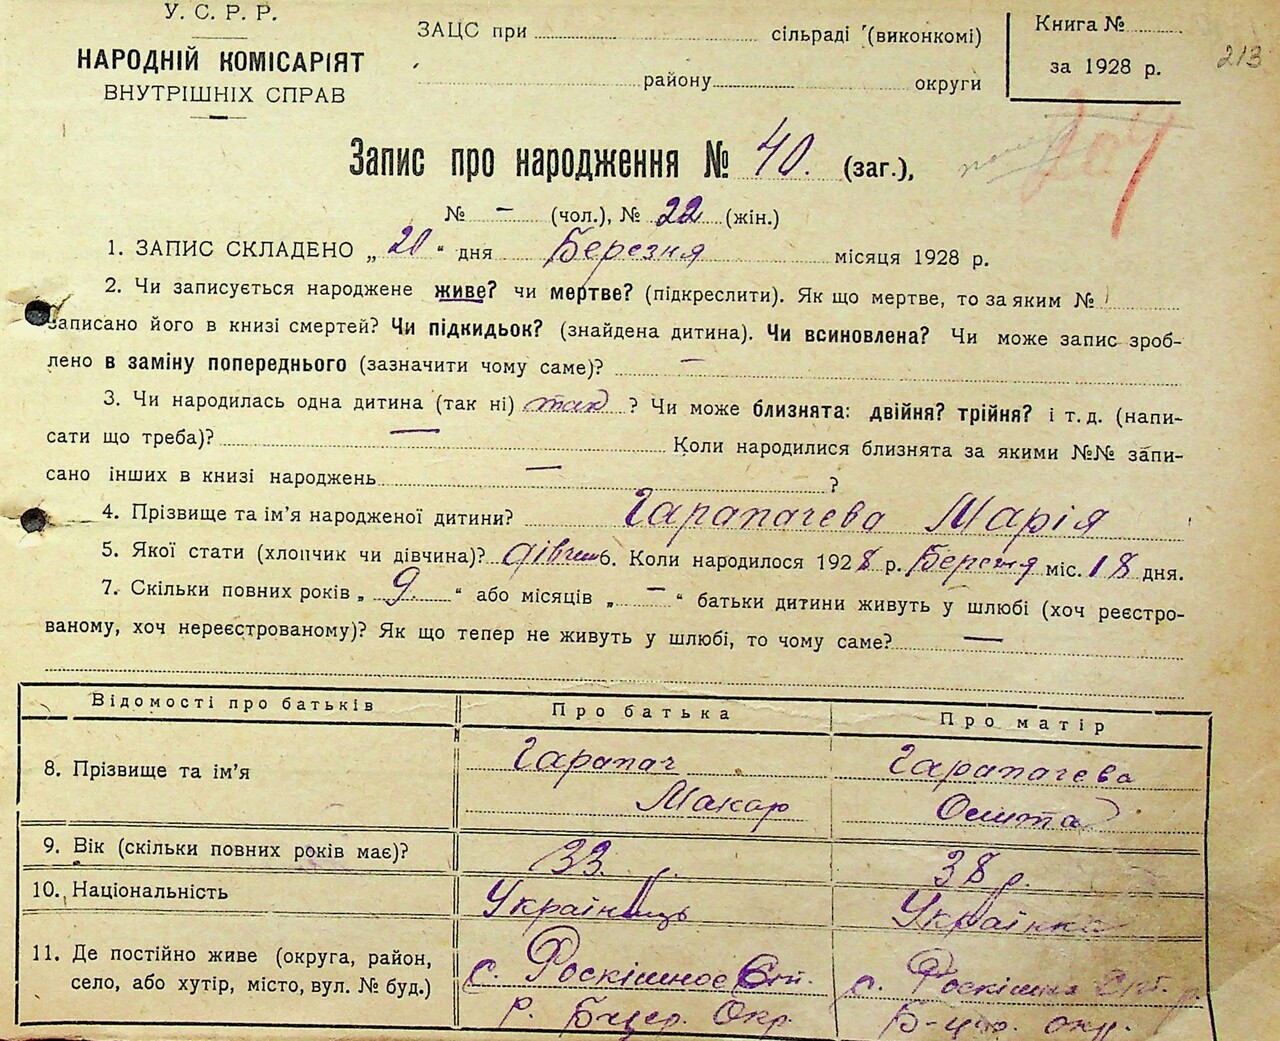 У. С. Р. Р.
НАРОДНІЙ КОМІСАРІЯТ
ВНУТРІШНІХ СПРАВ
ЗАЦС при сільраді (виконкомі)
району округи
Книга №
за 1928 р.
213
Запис про народження № 40. (заг.),
№ – (чол.), № 22 (жін.)
1. ЗАПИС СКЛАДЕНО „20“ дня Березня місяця 1928 р.
2. Чи записується народжене живе? чи мертве? (підкреслити). Як що мертве, то за яким №
записано його в книзі смертей? Чи підкидьок? (знайдена дитина). Чи всиновлена? Чи може запис зроб-
лено в заміну попереднього (зазначити чому саме)? —
3. Чи народилась одна дитина (так ні) так ? Чи може близнята: двійня? трійня? і т. д. (напи-
сати що треба)? — Коли народилися близнята за якими №№ запи-
сано інших в книзі народжень — ?
4. Прізвище та ім’я народженої дитини? Гарапачева Марія
5. Якої стати (хлопчик чи дівчина)? дівчин 6. Коли народилося 1928 р. Березня міс. 18 дня.
7. Скільки повних років „ 9. “ або місяців „ – “ батьки дитини живуть у шлюбі (хоч реєстро-
ваному, хоч нереєстрованому)? Як що тепер не живуть у шлюбі, то чому саме? —
Відомості про батьків Про батька Про матір
8. Прізвище та ім’я Гарапач Гарапачева
Макар
9. Вік (скільки повних років має)? 33. 38 р.
10. Національність Українець Українка
11. Де постійно живе (округа, район,
село, або хутір, місто, вул. № буд.)
с. Роскішное с. Роскішна
Р. Б-цер. Окр. Б-цер. окр.